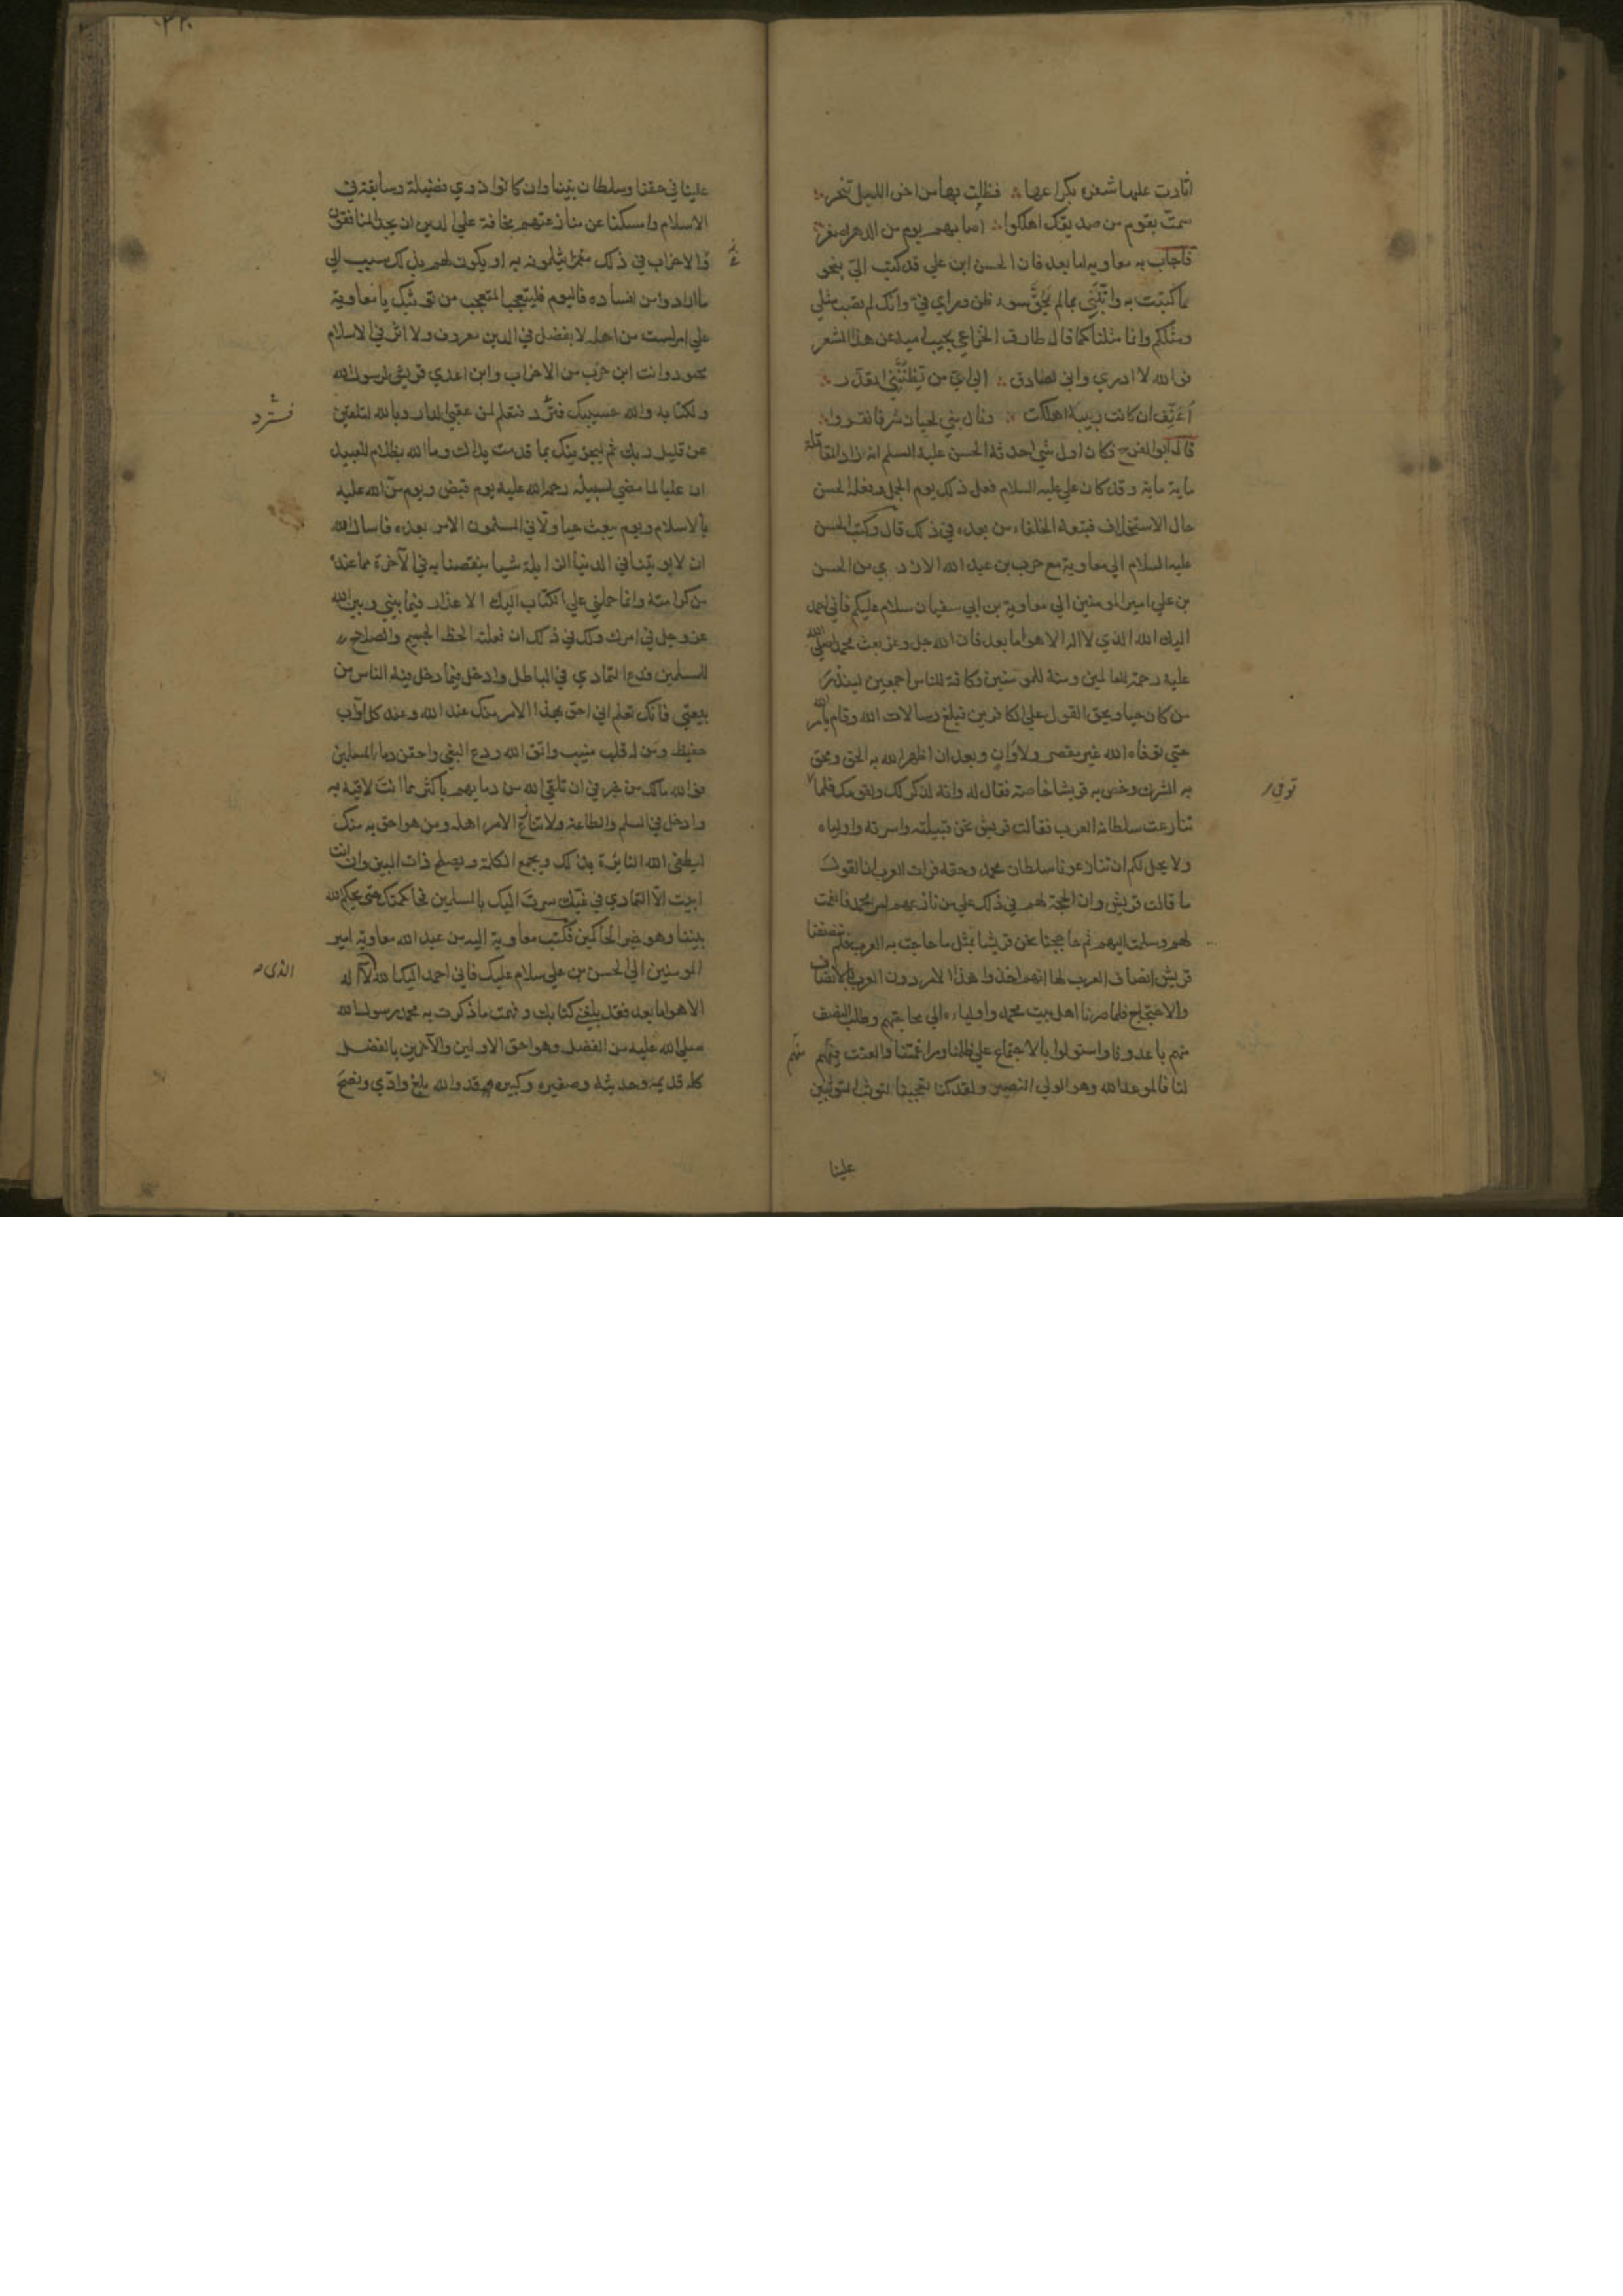 اثارت عليها شفرة بكراعها ∴ فظلت بها من اخر الليل تنحر ∴
شمت بقوم من صديقك اهلكوا ∴ اصابهم يوم من الدهر اصفر
فاجاب به معاويه اما بعد فان الحسن ابن علي قد كتب الي بنحو
ما كتبت به وانبني بمالم يحق سوء ظن وراي في وانك لم تصب مثلي
ومثلكم وانما مثلنا كما قال طارق الخزاعي يجيب اميه عن هذا الشعر
فوالله لا ادري واني لصادق ∴ الي اي من تظنني اتعذر ∴
اعنف ان كانت زبيبة اهلكت ∴ ونال بني لحيان شر فانفروا ∴
قال ابو الفرج فكان اول شي احدثه الحسن عليه السلم انه زاد المقاتلة
ماية ماية وقد كان علي عليه السلام فعل ذلك يوم الجمل وفعله الحسن
حال الاستخلاف فتبعه الخلفاء من بعده في ذلك قال وكتب الحسن
عليه السلام الي معاوية مع حرب بن عبد الله الازدي من الحسن
بن علي امير المومنين الي معاوية بن ابي سفيان سلام عليكم فاني احمد
اليك الله الذي لا اله الا هو اما بعد فان الله جل وعز بعث محمدا صلي الله
عليه رحمة للعالمين ومنة للمومنين وكافة للناس اجمعين لينذر
من كان حيا ويحق القول علي الكافرين فبلغ رسالات الله وقام بامر الله
حتي توفاه الله غير مقصر ولا وان وبعد ان اظهر الله به الحق ومحق
به الشرك وخص به قريشا خاصة فقال له وانه لذكر لك ولقومك فلما
توفي
تنازعت سلطانه العرب فقالت قريش نحن قبيلته واسرته واولياه
ولا يحل لكم ان تنازعونا سلطان محمد وحقه فرات العرب ان القول
ما قالت قريش وان الحجة لهم في ذلك علي من نازعهم امر محمد فانعمت
لهم وسلمت اليهم ثم حاججنا نحن قريشا بمثل ما حاجت به العرب فلم تنصفنا
قريش انصاف العرب لها انهم اخذوا هذا الامر دون العرب بالانصاف
والاحتجاج فلما صرنا اهل بيت محمد واولياءه الي محاجتهم وطلب النصف
منهم باعدونا واستولوا بالاجتماع علي ظلمنا ومراغمتنا والعنت منهم
منهم
لنا فالموعد الله وهو الولي النصير ولقد كنا تعجبنا لتوثب المتوثبين
علينا
٢٢٠
علينا في حقنا وسلطان نبينا وان كانوا ذوي فضيلة وسابقة في
الاسلام وامسكنا عن منازعتهم مخافة علي الدين ان يجد المنافقون
والاحزاب في ذلك مغمزا يثلمونه به او يكون لهم بذلك سبب الي
ما ارادوا من افساده فاليوم فليتعجب المتعجب من توثبك يا معاوية
علي امر لست من اهله لا بفضل في الدين معروف ولا اثر في الاسلام
محمود وانت ابن حزب من الاحزاب وابن اعدي قريش لرسول الله
ولكتابه والله حسيبك فترد فتعلم لمن عقبي الدار وبالله لتلقين
فسترد
عن قليل ربك ثم ليجزينك بما قدمت يداك وما الله بظلام للعبيد
ان عليا لما مضي لسبيله رحمه الله عليه يوم قبض ويوم من الله عليه
بالاسلام ويوم يبعث حيا ولاني المسلمون الامر بعده فاسال الله
ان لا يوتينا في الدنيا الزايلة شيا ينقصنا به في الآخرة مما عنده
من كرامته وانما حملني علي الكتاب اليك الاعذار فيما بيني وبين الله
عز وجل في امرك ولك في ذلك ان فعلته الحظ الجسيم والصلاح
للمسلمين فدع التمادي في الباطل وادخل فيما دخل فيه الناس من
بيعتي فانك تعلم اني احق بهذا الامر منك عند الله وعند كل اواب
حفيظ ومن له قلب منيب واتق الله ودع البغي واحقن دماء المسلمين
فوالله مالك من خير في ان تلقي الله من دمايهم باكثر مما انت لاقيه به
وادخل في السلم والطاعة ولا تنازع الامر اهله ومن هو احق به منك
ليطفي الله النائرة بذلك ويجمع الكلمة ويصلح ذات البين وان انت
ابيت الا التمادي في غيك سرت اليك بالمسلمين فحاكمتك حتي يحكم الله
بيننا وهو خير الحاكمين فكتب معاوية اليه من عبد الله معاوية امير
المومنين الي الحسن بن علي سلام عليك فاني احمد اليك الله لا اله
الذي
الا هو اما بعد فقد بلغني كتابك وفهمت ما ذكرت به محمد رسول الله
صلي الله عليه من الفضل وهو احق الاولين والآخرين بالفضل
كله قديمه وحديثه وصغيره وكبيره فقد والله بلغ وادي ونصح